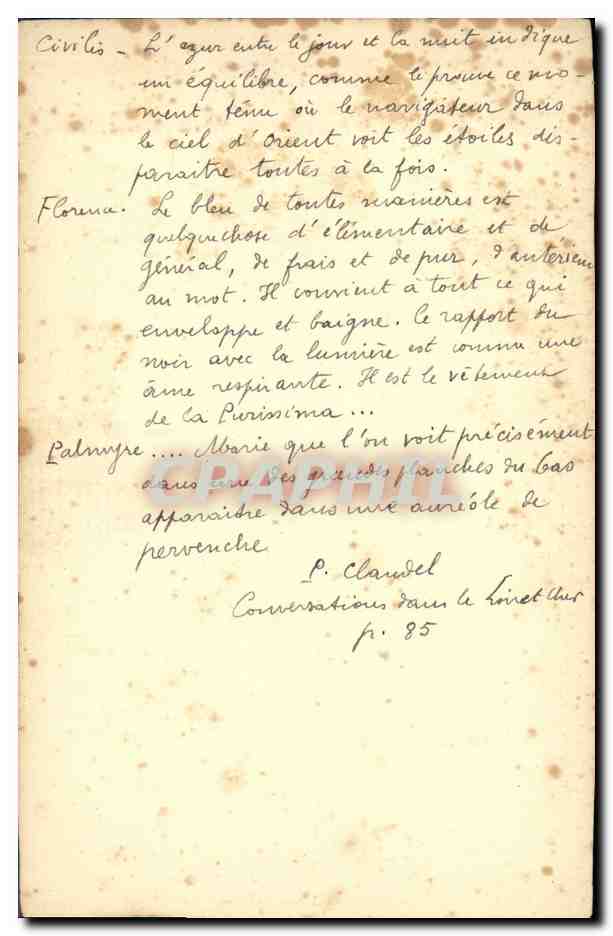 Civilis - L'azur entre le jour et la nuit indique
un équilibre, comme le prouve ce mo-
ment ténu où le navigateur dans
le ciel d'Orient voit les étoiles dis-
paraitre toutes à la fois.
Florence. Le bleu de toutes manières est
quelquechose d'élémentaire et de
général, de frais et de pur, d'antérieur
au mot. Il convient à tout ce qui
enveloppe et baigne. Ce rapport du
noir avec la lumière est comme une
âme respirante. Il est le vêtement
de la Purissima ...
Palmyre .... Marie que l'on voit précisément
dans une des grandes planches du bas
apparaitre dans une auréole de
pervenche
P. Claudel
Conversations dans le Loir et Cher
p. 85
CPAPHIL